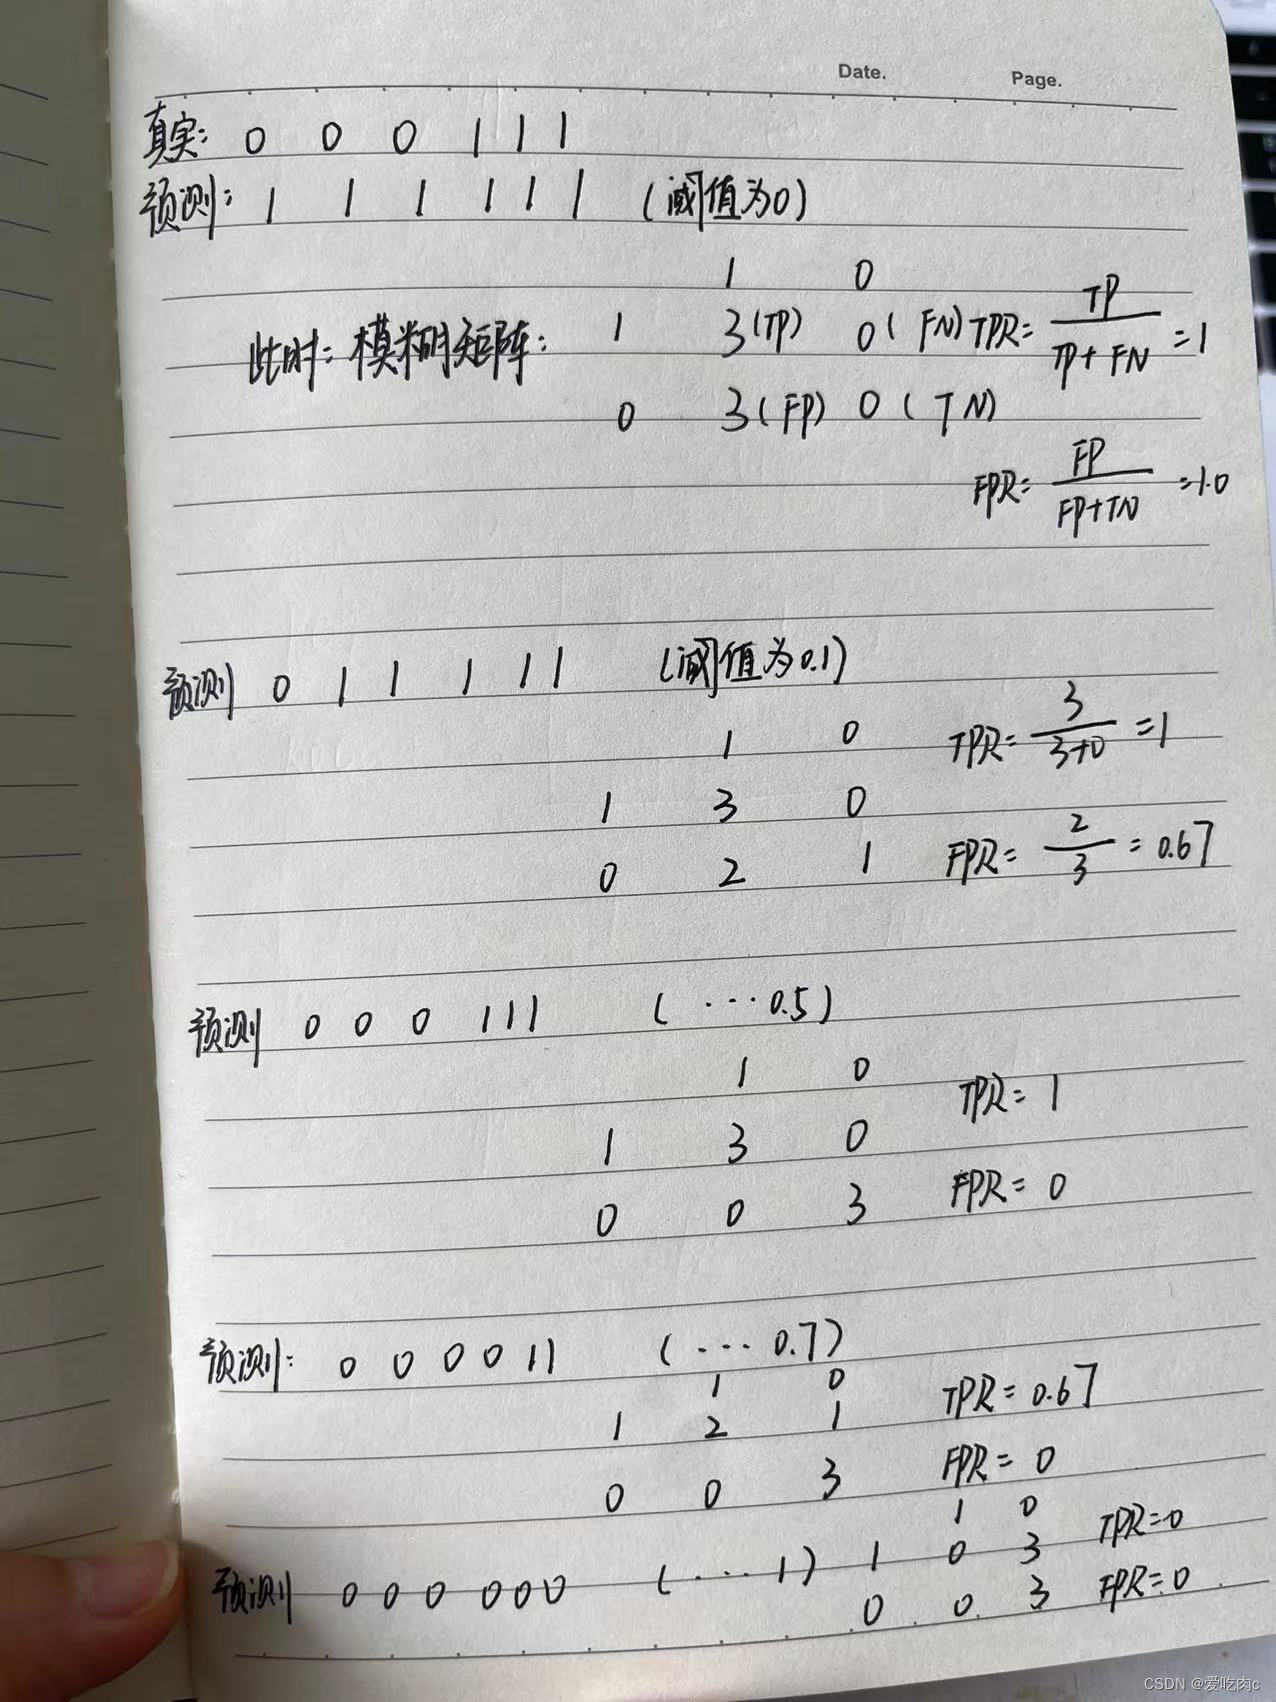 Date. Page.
真实: 0 0 0 1 1 1
预测: 1 1 1 1 1 1 (阈值为0)
1 0
此时: 模糊矩阵: 1 3(TP) 0(FN) TPR= TP/(TP+FN) =1
0 3(FP) 0(TN)
FPR= FP/(FP+TN) =1.0
预测 0 1 1 1 1 1 (阈值为0.1)
1 0 TPR= 3/(3+0) =1
1 3 0
0 2 1 FPR= 2/3 = 0.67
预测 0 0 0 1 1 1 (···0.5)
1 0 TPR= 1
1 3 0
0 0 3 FPR= 0
预测: 0 0 0 0 1 1 (···0.7)
1 0 TPR= 0.67
1 2 1
0 0 3 FPR= 0
1 0 TPR=0
预测 0 0 0 0 0 0 (···1) 1 0 3
0 0 3 FPR=0
CSDN @爱吃肉c